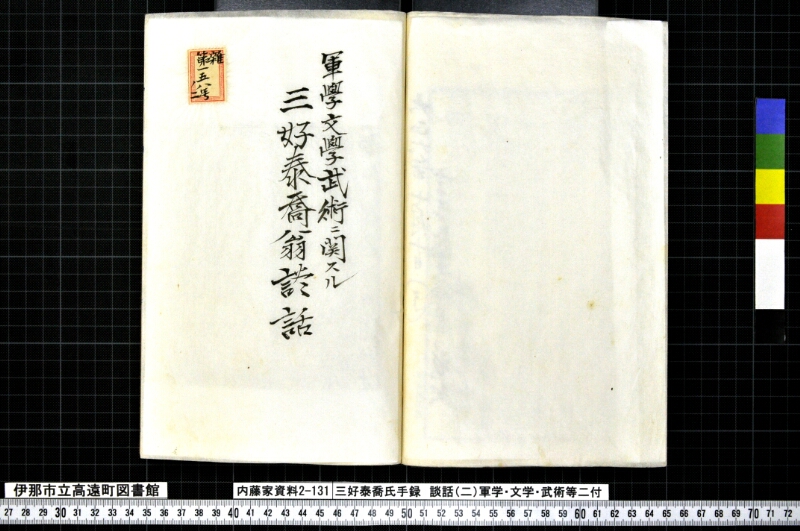 軍學文學武術ニ関スル
三好泰喬翁談話
雑
第一五八号
二
伊那市立高遠町図書館
内藤家資料2-131
三好泰喬氏手録 談話(二)軍学・文学・武術等二付
27 28 29 30 31 32 33 34 35 36 37 38 39 40 41 42 43 44 45 46 47 48 49 50 51 52 53 54 55 56 57 58 59 60 61 62 63 64 65 66 67 68 69 70 71 72